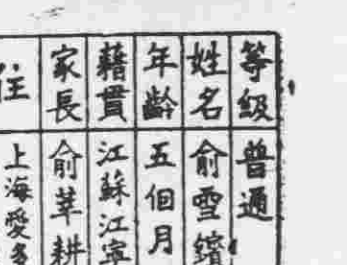 等級 普通
姓名 俞雪鑌
年齡 五個月
藉貫 江蘇江寧
家長 俞莘耕
住 上海愛多